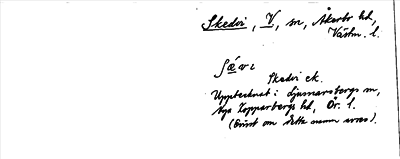 Skedvi, V, sn, Åkerbo hd,
Västm. l.
Skedvi ck.
Upptecknat i Ljusnarsbergs sn,
Nya Kopparbergs hd, Ör. l.
(Ovisst om detta namn avses).